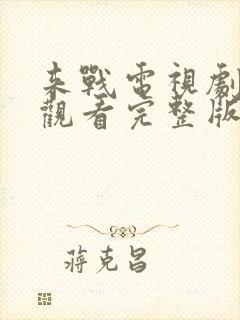 来戰電視劇
觀看完整版
蔣克昌